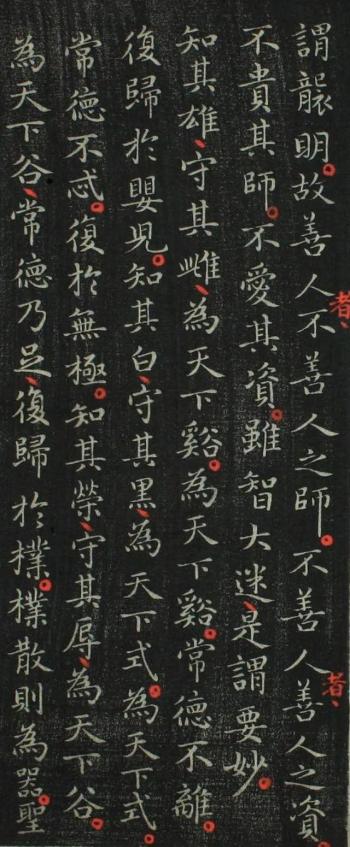 謂襲明。故善人者、不善人之師。不善人者、善人之資。
不貴其師。不愛其資。雖智大迷、是謂要妙。
知其雄、守其雌、為天下谿。為天下谿。常德不離。
復歸於嬰兒。知其白、守其黑、為天下式。為天下式。
常德不忒。復於無極。知其榮、守其辱、為天下谷。
為天下谷、常德乃足、復歸於樸。樸散則為器。聖